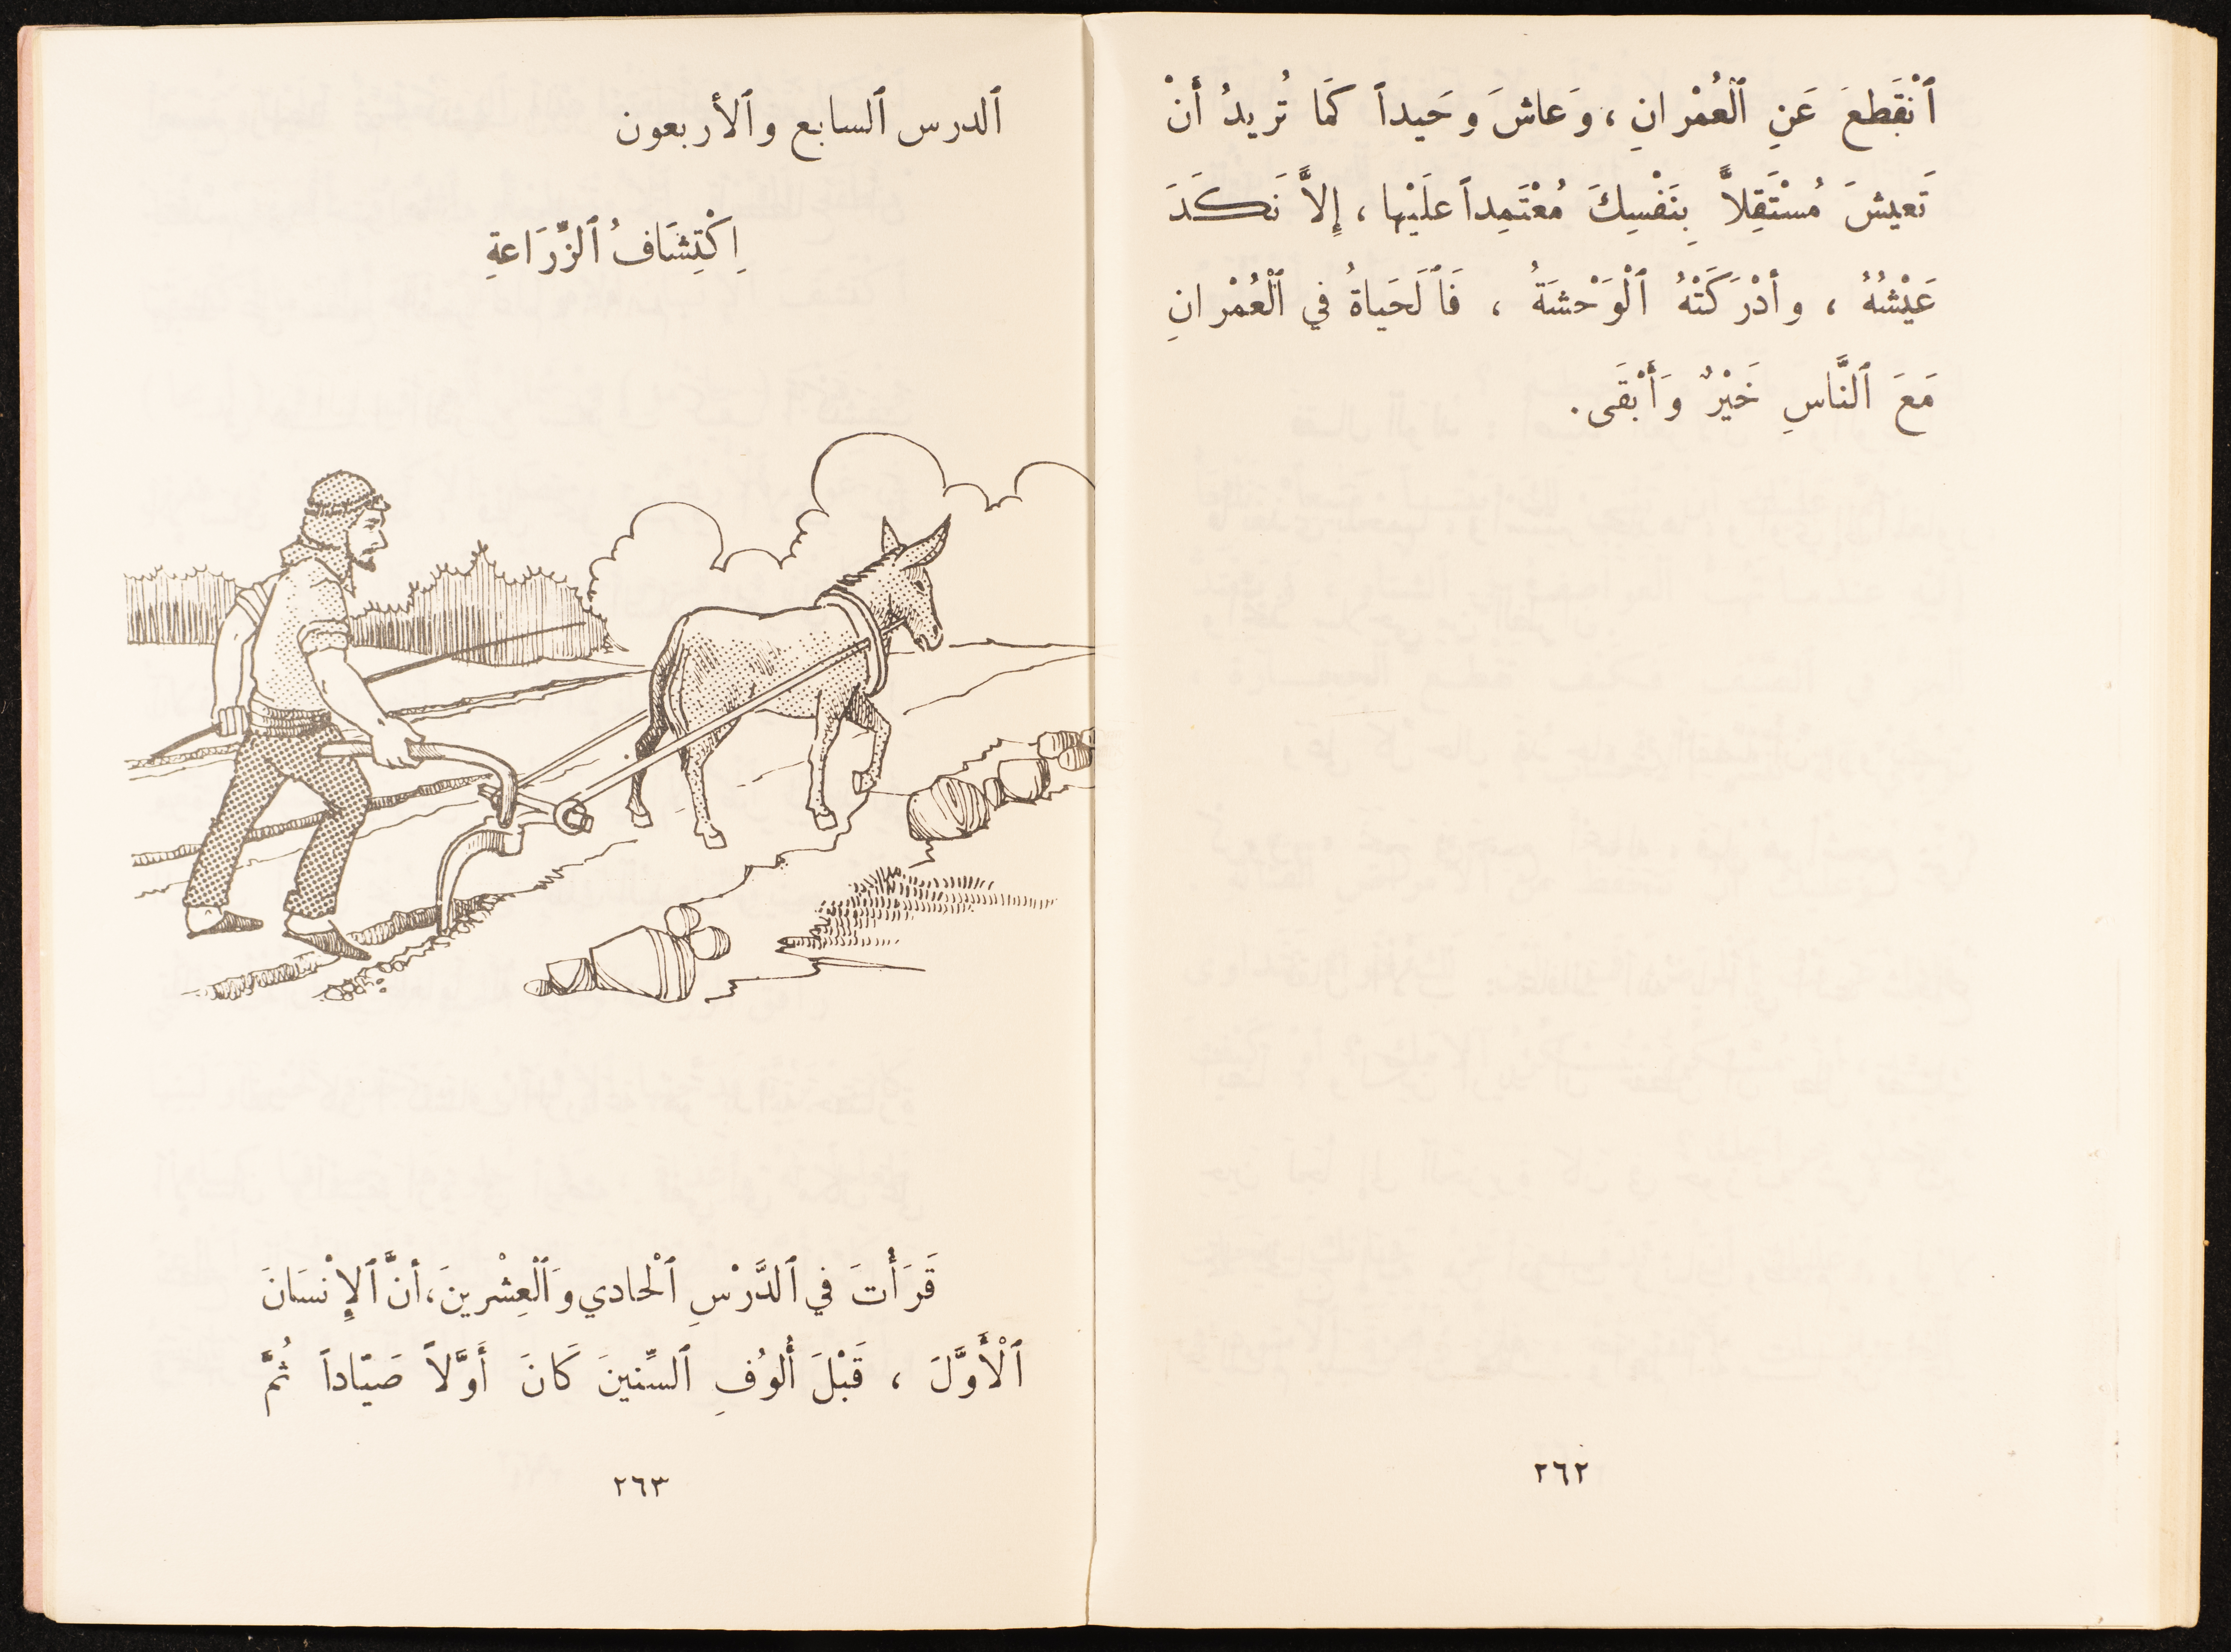 ٱنْقَطَعَ عَنِ ٱلْعُمْرانِ ، وَعاشَ وَحَيداً كَما تُريدُ أَنْ
تَعيشَ مُسْتَقِلاًّ بِنَفْسِكَ مُعْتَمِداً علَيْها ، إِلاَّ نَكَدَ
عَيْشُهُ ، وأدْرَكَتْهُ ٱلْوَحْشَةُ ، فَٱلَحَياةُ في ٱلْعُمْرانِ
مَعَ ٱلنَّاسِ خَيْرٌ وَأَبْقَى .
٢٦٢
ٱلدرس ٱلسابع وٱلأربعون
اِكْتِشَافُ ٱلزِّرَاعةِ
قَرَأْتَ في ٱلدَّرْسِ ٱلْحادي وَٱلْعِشْرينَ ، أنَّ ٱلإِنْسَانَ
ٱلْأَوَّلَ ، قَبْلَ أُلوُفِ ٱلسِّنينَ كَانَ أَوَّلاً صَيّاداً ثُمَّ
٢٦٣